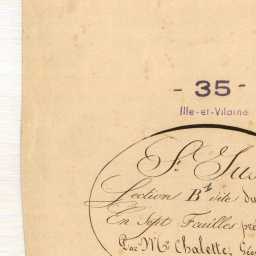 - 35 -
Ille-et-Vilaine
St. Jus
Section B. dite du
En Sept Feuilles pré
Par Mr. Chalette, Géo